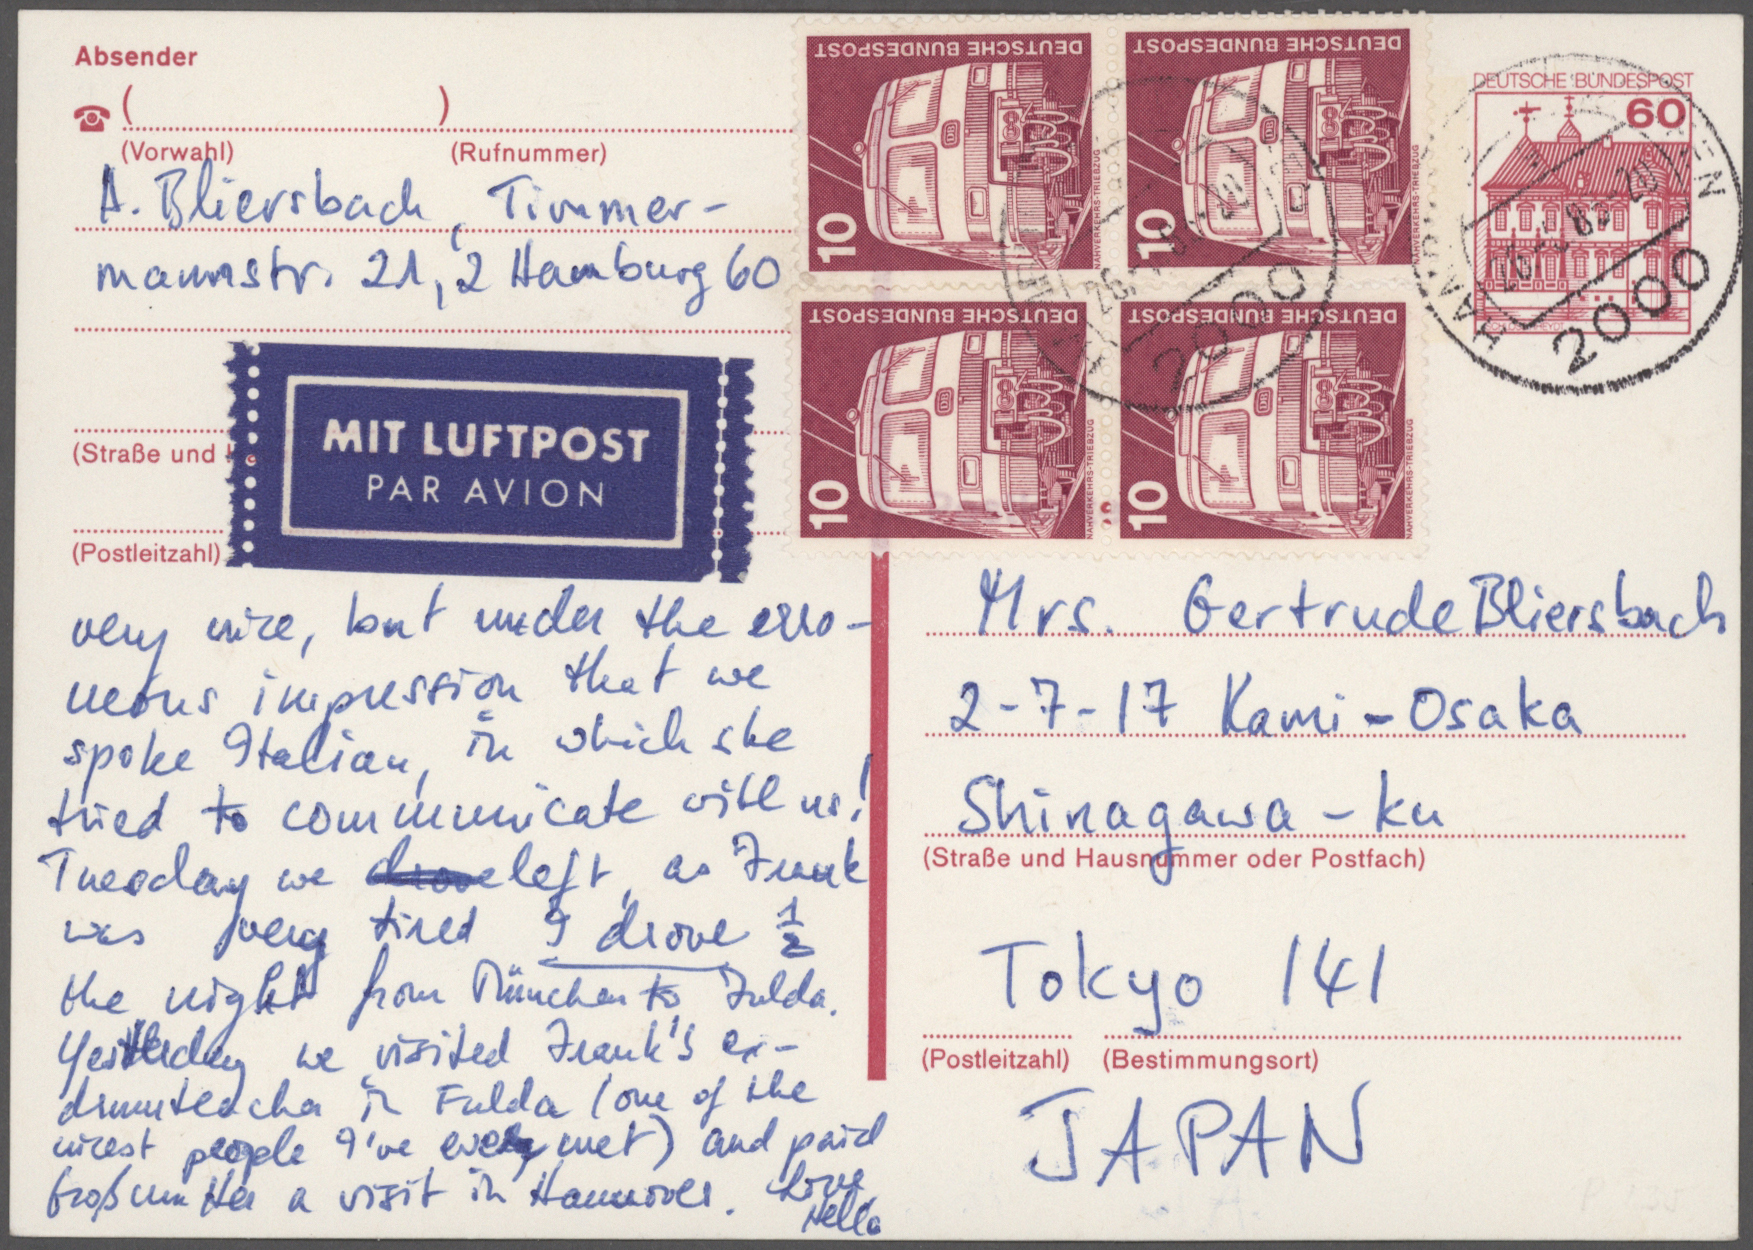 Absender
( )
(Vorwahl) (Rufnummer)
A. Bliersbach, Timmer-
mannstr. 21, 2 Hamburg 60
(Straße und
(Postleitzahl)
MIT LUFTPOST
PAR AVION
very nice, but under the erro-
neous impression that we
spoke Italian, in which she
tried to communicate with us!
Tuesday we left, as Frank
was very tired I drove 1/2
the night from München to Fulda.
Yesterday we visited Frank's ex-
drumteacher in Fulda (one of the
nicest people I've ever met) and paid
Großmutter a visit in Hannover. Love,
Nella
DEUTSCHE BUNDESPOST
10
NAHVERKEHRS-TRIEBZUG
DEUTSCHE BUNDESPOST
10
NAHVERKEHRS-TRIEBZUG
DEUTSCHE BUNDESPOST
10
NAHVERKEHRS-TRIEBZUG
DEUTSCHE BUNDESPOST
10
NAHVERKEHRS-TRIEBZUG
2000
DEUTSCHE BUNDESPOST
60
2000
Mrs. Gertrude Bliersbach
2-7-17 Kami-Osaka
Shinagawa-ku
(Straße und Hausnummer oder Postfach)
Tokyo 141
(Postleitzahl) (Bestimmungsort)
JAPAN